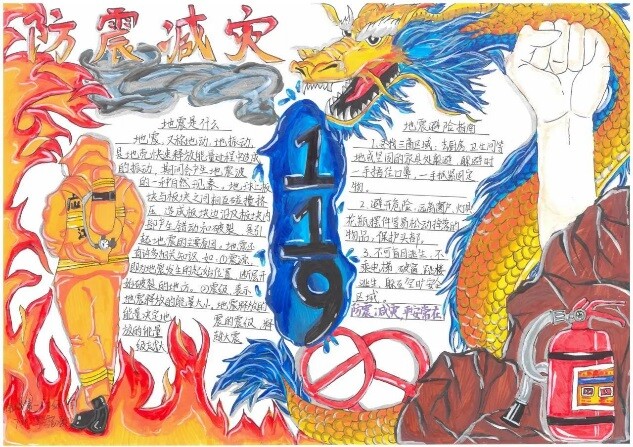 防震减灾
地震是什么
地震,又称地动、地振动,
是地壳快速释放能量过程中造成
的振动,期间会产生地震波
的一种自然现象。地球上板
块与板块之间相互碰撞挤
压,造成板块边沿及板块内
部产生错动和破裂,是引
起地震的主要原因,地震还
有许多相关知识,如:①震源:
地震发生的起始位置,断层开
始破裂的地方。②震级:表示
地震释放的能量大小,地震释放的
能量决定地
震的震级,释
放的能量
越大震
级越大
119
地震避险指南
1.去找三角区域,去厨房、卫生间等
地或坚固的家具处躲避,躲避时
一手捂住口鼻,一手抓紧固定
物。
2.避开危险,远离窗户、灯具
花瓶摆件等易松动掉落的
物品,保护头部。
3.不可盲目逃生,不
乘电梯
逃生,躲至空旷安全
区域
防震减灾 平安常在